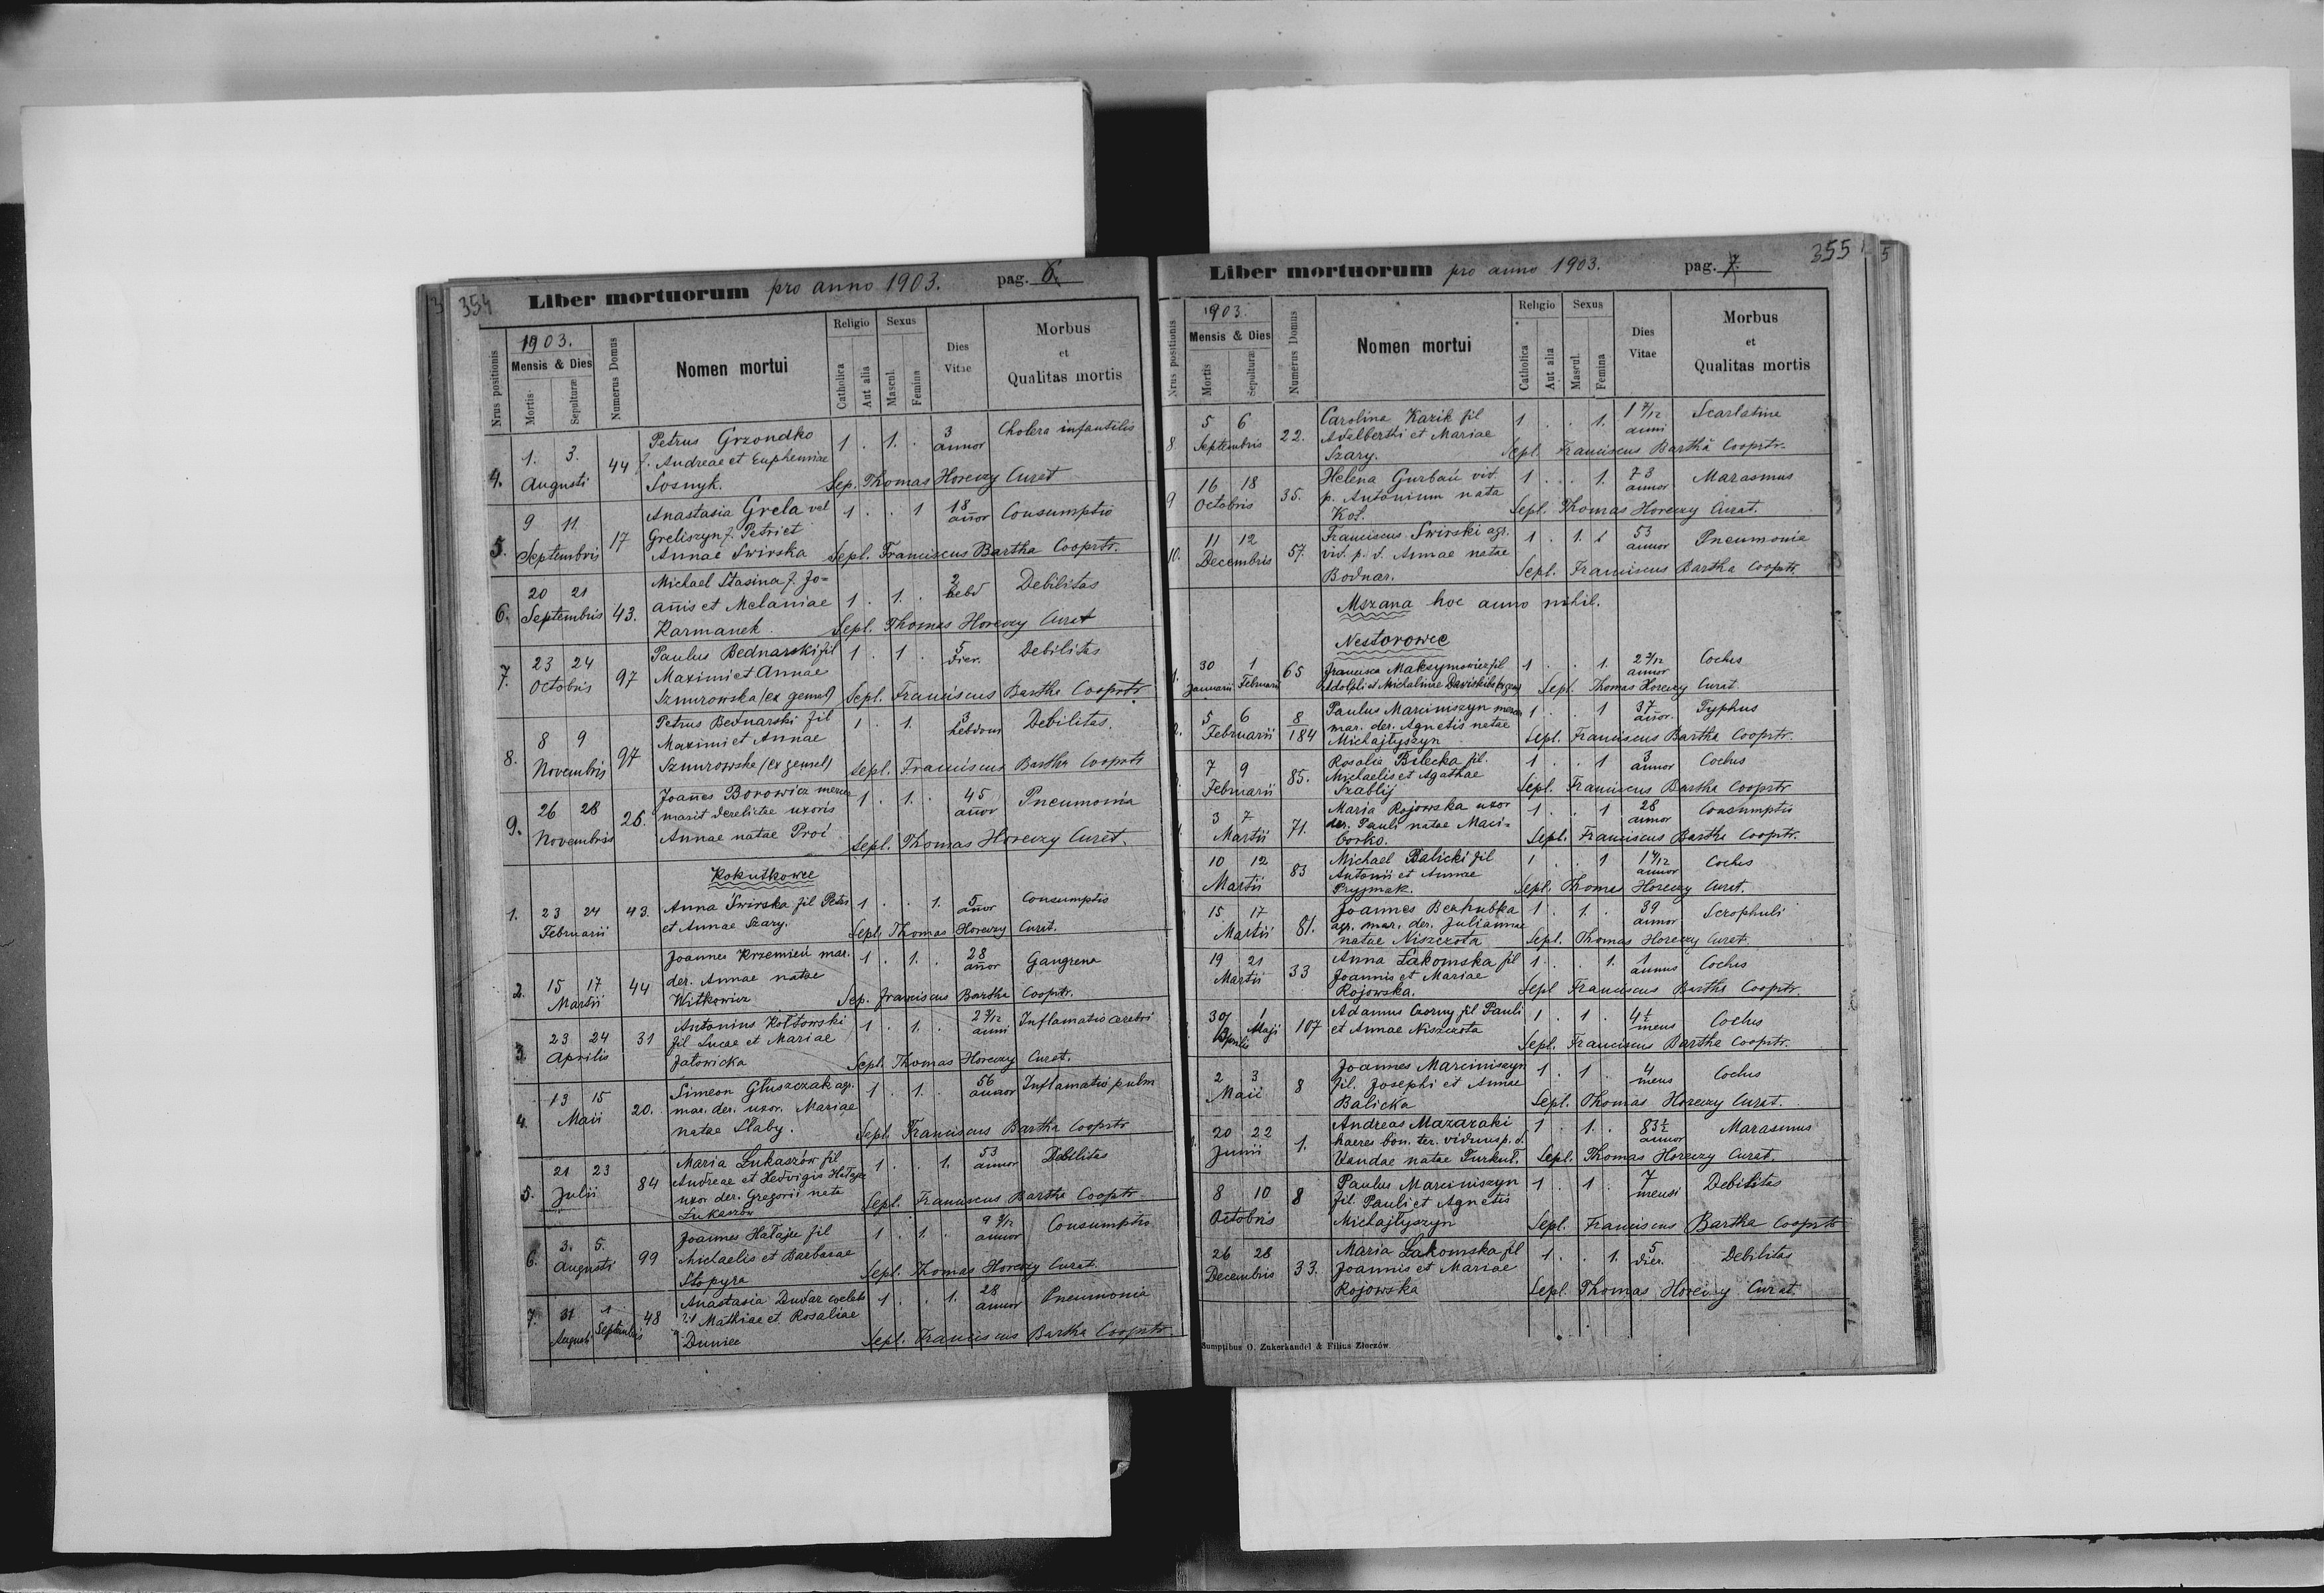 354
Liber mortuorum pro anno 1903. pag. 6.
Nrus positionis
1903.
Mensis & Dies
Mortis
Sepulturæ
Numerus Domus
Nomen mortui
Religio
Catholica
Aut alia
Sexus
Mascul.
Femina
Dies
Vitae
Morbus
et
Qualitas mortis
4. 1. 3. 44 Petrus Grzondko 1 . 1. . 3 Cholera infantilis
Augusti f. Andreae et Euphemiae annor
Sosnyk. Sep. Thomas Horeczy Curat
5. 9 11 17 Anastasia Grela vel 1 . . 1 18 Consumptio
Septembris Greliszyn f. Petri et añor
Annae Swirska Sepl. Franciscus Bartha Cooprtr.
6. 20 21 43. Michael Stasina f. Jo= 2 Debilitas
Septembris añis et Melaniae 1 . 1. . hebd
Karmanek Sepl. Thomas Horeczy Curat
7. 23 24 97 Paulus Bednarski fil 1 . 1 . 5 Debilitas
Octobris Maximi et Annae dier.
Sznurowska (ex gemel) Sepl. Franciscus Bartha Cooprtr
8. 8 9 97 Petrus Bednarski fil 1 . 1. 3 Debilitas
Novembris Maximi et Annae hebdom
Sznurowska (ex gemel) Sepl. Franciscus Bartha Cooprtr
9. 26 28 26. Joañes Borowicz mercen 1 . 1. . 45 Pneumonia
Novembris marit derelictae uxoris añor
Annae natae Proć Sepl. Thomas Horeczy Curat.
Kokutkowce
1. 23 24 43. Anna Swirska fil Petri 1 . . 1. 5 Consumptio
Februarii et Annae Szary. añor
Sepl. Thomas Horeczy Curat.
2. 15 17 44 Joannes Krzemień mar. 1 . 1. . 28 Gangrena
Martii der. Annae natae añor
Witkowicz Sep. Franciscus Bartha Cooprtr.
3. 23 24 31 Antonius Kołtowski 1 . 1. . 2 3/12 Inflamatio cerebri
Aprilis fil Lucae et Mariae anni
Jatowicka Sepl. Thomas Horeczy Curat.
4. 13 15 20. Simeon Głuszczak agr. 1 . 1. . 56 Inflamatio pulm
Maii mar. der. uxor. Mariae annor
natae Słaby. Sepl. Franciscus Bartha Cooprtr
5. 21 23 84 Maria Łukaszów fil 1 . . 1. 53 Debilitas
Julii Andreae et Hedvigis Hałaju annor
uxor der. Gregorii nata
Łukaszów Sepl. Franciscus Bartha Cooprtr
6. 3. 5. 99 Joannes Hałaju fil 1 . 1. . 9 9/12 Consumptio
Augusti Michaelis et Barbarae annor
Stopyra Sepl. Thomas Horeczy Curat.
7. 31 1 48 Anastasia Dudar coelebs 1 . . 1. 28 Pneumonia
Augusti Septembris fil Mathiae et Rosaliae annor
Duniec Sepl. Franciscus Bartha Cooprtr.
355
5
Liber mortuorum pro anno 1903. pag. 7.
Nrus positionis
1903.
Mensis & Dies
Mortis
Sepulturæ
Numerus Domus
Nomen mortui
Religio
Catholica
Aut alia
Sexus
Mascul.
Femina
Dies
Vitae
Morbus
et
Qualitas mortis
8 5 6 22. Carolina Kazik fil 1 . . 1. 1 7/12 Scarlatine
Septembris Adalberthi et Mariae anni
Szary. Sepl Franciscus Bartha Cooprtr.
9 16 18 35. Helena Gurbań vid. 1 . . 1. 73 Marasmus
Octobris p. Antonium nata annor
Kot. Sepl. Thomas Horeczy Curat.
10. 11 12 57. Franciscus Swirski agr. 1 . 1. 53 Pneumonia
Decembris vid. p. d. Annae natae annor
Bodnar. Sepl. Franciscus Bartha Cooprtr.
Mszana hoc anno nihil.
Nestorowce
1. 30 1 65 Francisca Maksymowicz fil 1 . . 1. 2 2/12 Coclus
Januarii Februarii Adolphi et Michalinae annor
Sepl. Thomas Horeczy Curat.
2. 5 6 8/184 Paulus Marciniszyn mercen 1 . . 1 37 Typhus
Februarii mar. der. Agnetis natae añor.
Michajłyszyn Sepl. Franciscus Bartha Cooprtr.
7 9 85. Rosalia Bilecka fil. 1 . . 1 3 Coclus
Februarii Michaelis et Agathae annor
Szablij Sepl. Franciscus Bartha Cooprtr
3 7 71. Maria Rojowska uxor 1 . . 1 28 Consumptio
Martii der. Pauli natae Maci= annor
borko. Sepl. Franciscus Bartha Cooprtr.
10 12 83 Michael Balicki fil 1 . . 1 1 4/12 Coclus
Martii Antonii et Annae annor
Pryjmak. Sepl. Thomas Horeczy Curat.
15 17 81. Joannes Bezhubka 1 . 1. . 39 Scrophuli
Martii agr. mar. der. Juliannae annor
natae Niszczota Sepl. Thomas Horeczy Curat.
19 21 33 Anna Łakomska fil 1 . . 1. 1 Coclus
Martii Joannis et Mariae annus
Rojowska. Sepl Franciscus Bartha Cooprtr.
30 1 107 Adamus Czorny fil Pauli 1 . 1 . 4½ Coclus
Aprilis Maji et Annae Niszczota mens
Sepl. Franciscus Bartha Cooprtr.
2 3 8 Joannes Marciniszyn 1 . 1 . 4 Coclus
Maii fil. Josephi et Annae mens
Balicka Sepl. Thomas Horeczy Curat.
20 22 1. Andreas Mazaraki 1 . 1. . 83½ Marasmus
Junii haeres bon. ter. viduus p. d. annor
Vandae natae Turkuł. Sepl. Thomas Horeczy Curat.
8 10 8 Paulus Marciniszyn 1 . 1 . 7 Debilitas
Octobris fil. Pauli et Agnetis mensi
Michajłyszyn Sepl. Franciscus Bartha Cooprtr
26 28 33. Maria Łakomska fil 1 . . 1. 5 Debilitas
Decembris Joannis et Mariae dier.
Rojowska Sepl. Thomas Horeczy Curat.
Sumptibus O. Zukerkandel & Filius Złoczów